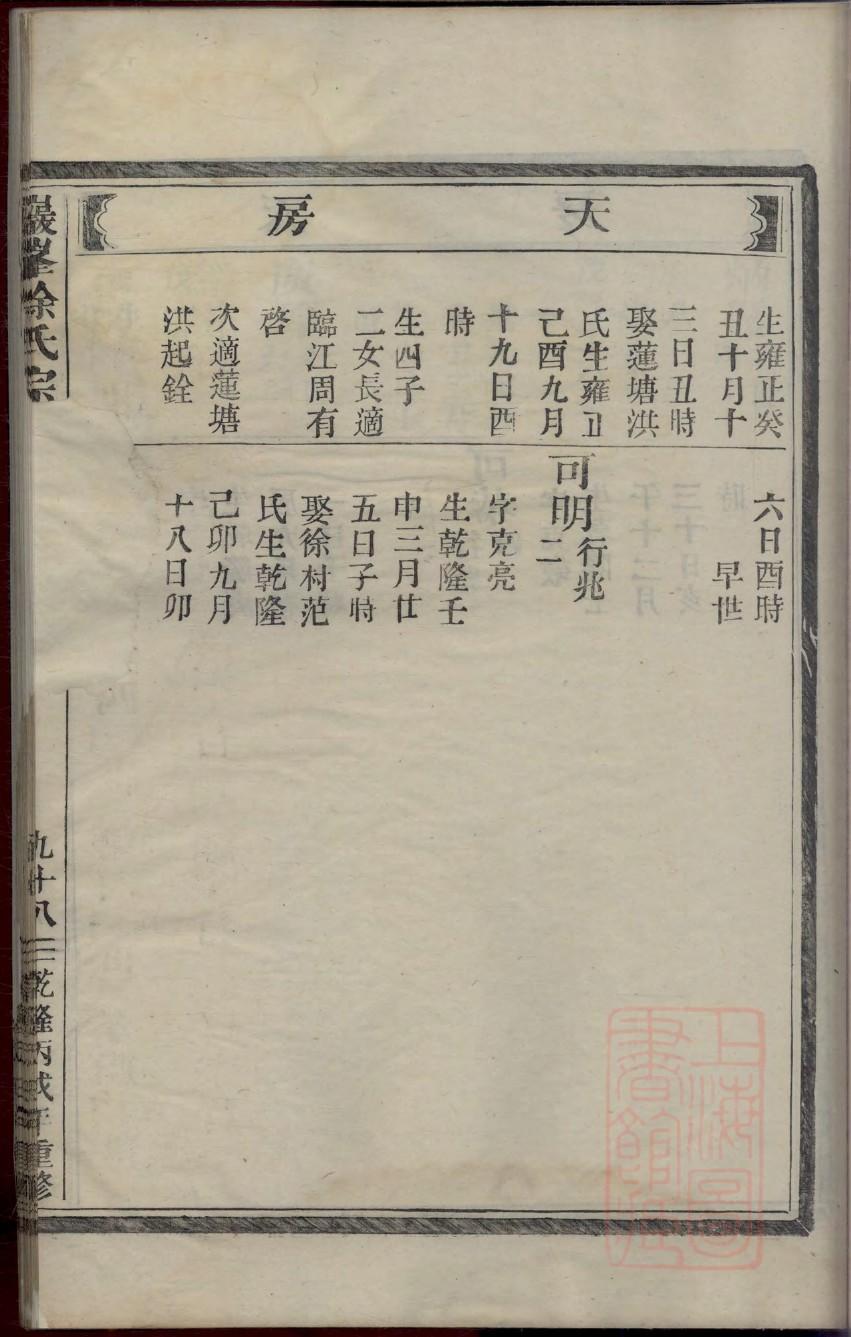 天房
生雍正癸
丑十月十
三日丑時
娶蓮塘洪
氏生雍正
己酉九月
十九日酉
時
生四子
二女長適
臨江周有
啓
次適蓮塘
洪起銓
六日酉時
早世
可明行兆
二
字克亮
生乾隆壬
申三月廿
五日子時
娶徐村范
氏生乾隆
己卯九月
十八日卯
巖峯徐氏宗
九十八
乾隆丙戌年重修
上海圖
書館藏